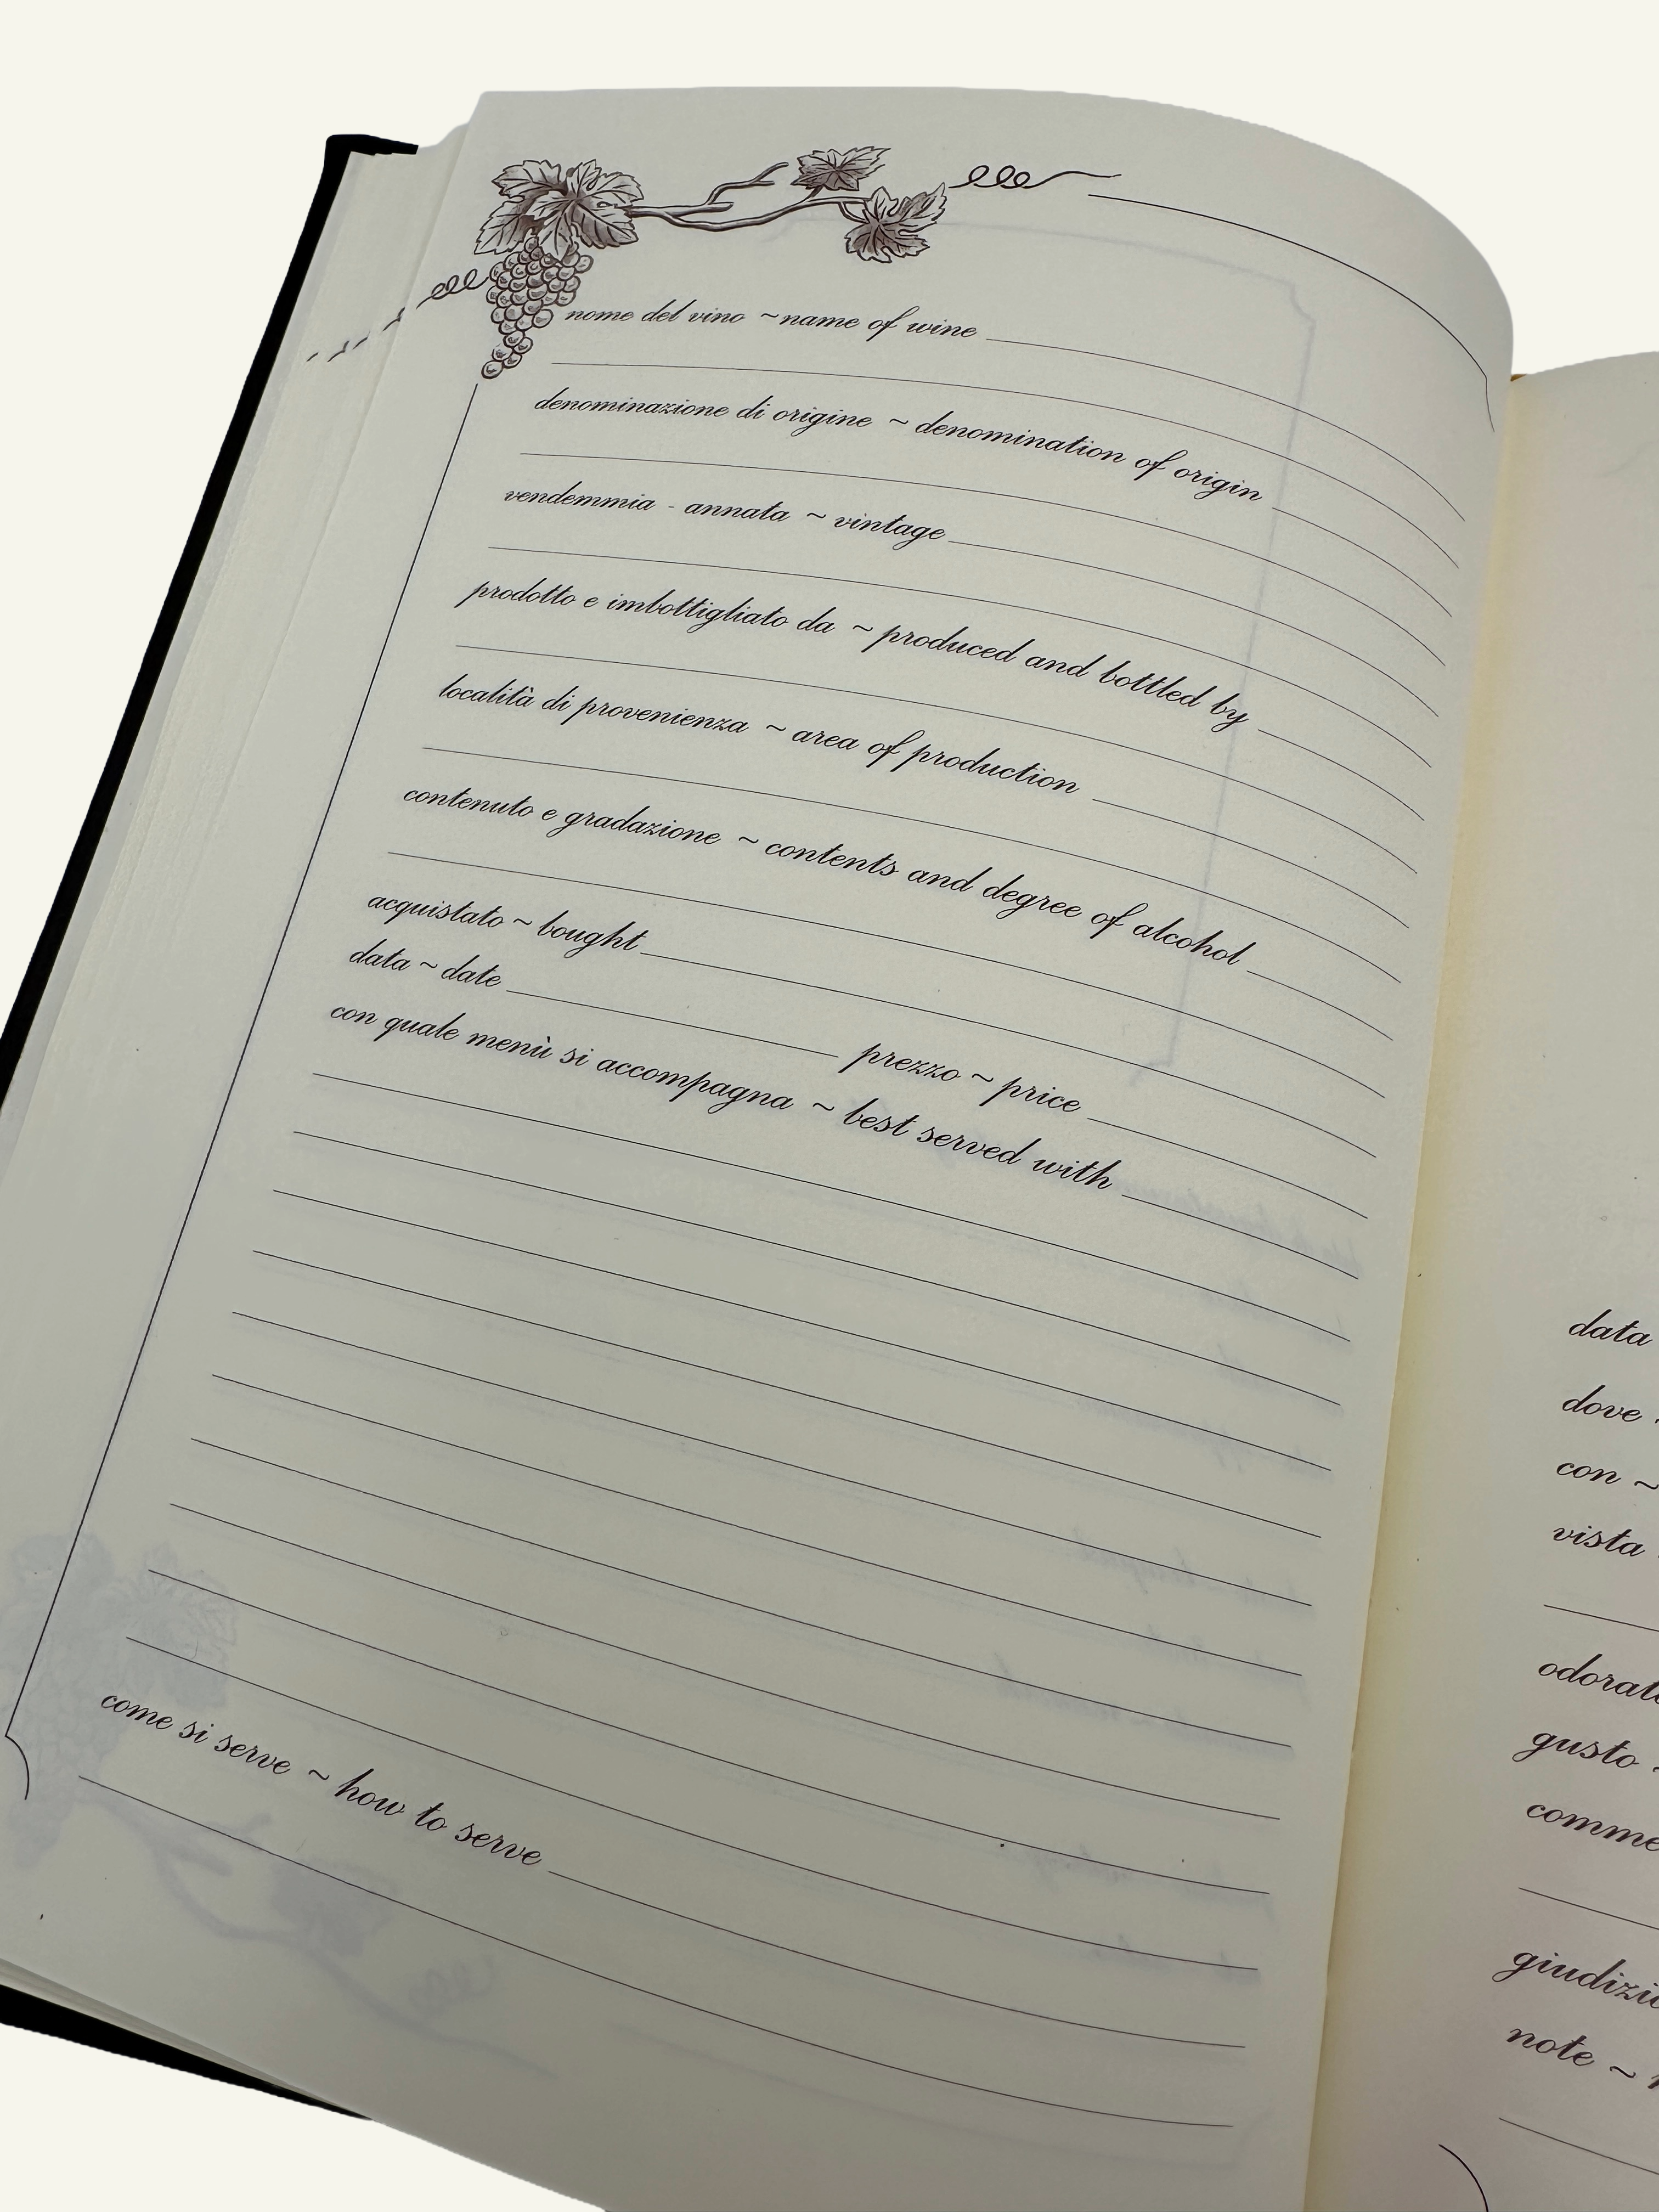 nome del vino ~ name of wine
denominazione di origine ~ denomination of origin
vendemmia - annata ~ vintage
prodotto e imbottigliato da ~ produced and bottled by
località di provenienza ~ area of production
contenuto e gradazione ~ contents and degree of alcohol
acquistato ~ bought
data ~ date prezzo ~ price
con quale menù si accompagna ~ best served with
come si serve ~ how to serve
data
dove
con ~
vista
gusto
note ~